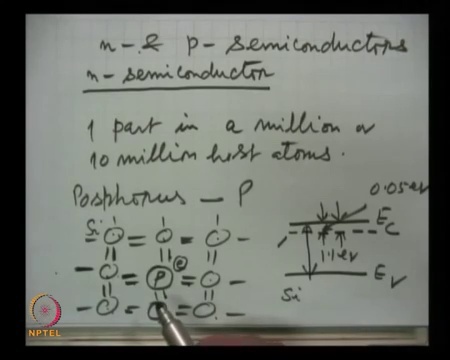 n- & p- semiconductors
n- semiconductor
1 part in a million or
10 million host atoms.
Posphorus — P
0.05 eV
Si
E_C
e
1.1 eV
P
E_V
Si
NPTEL